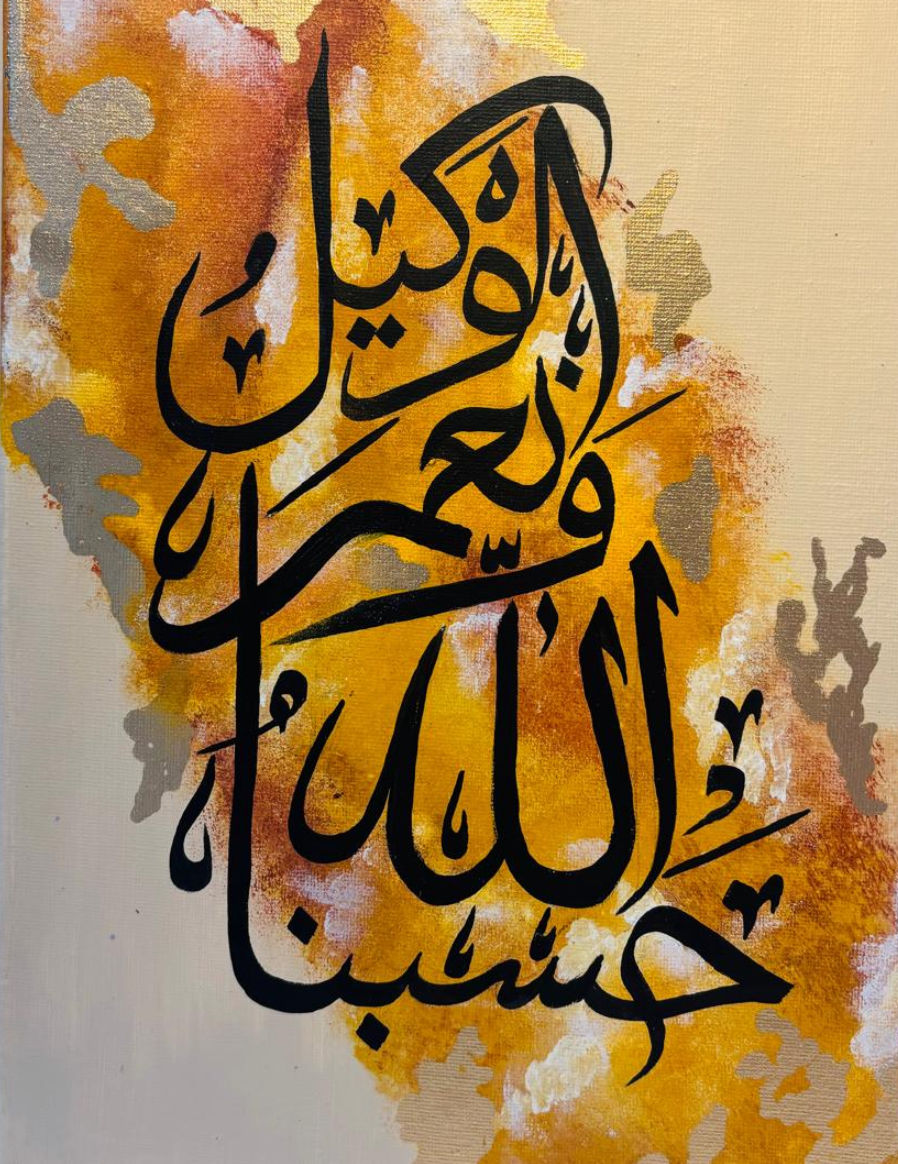 حسبنا
الله
ونعم
الوكيل